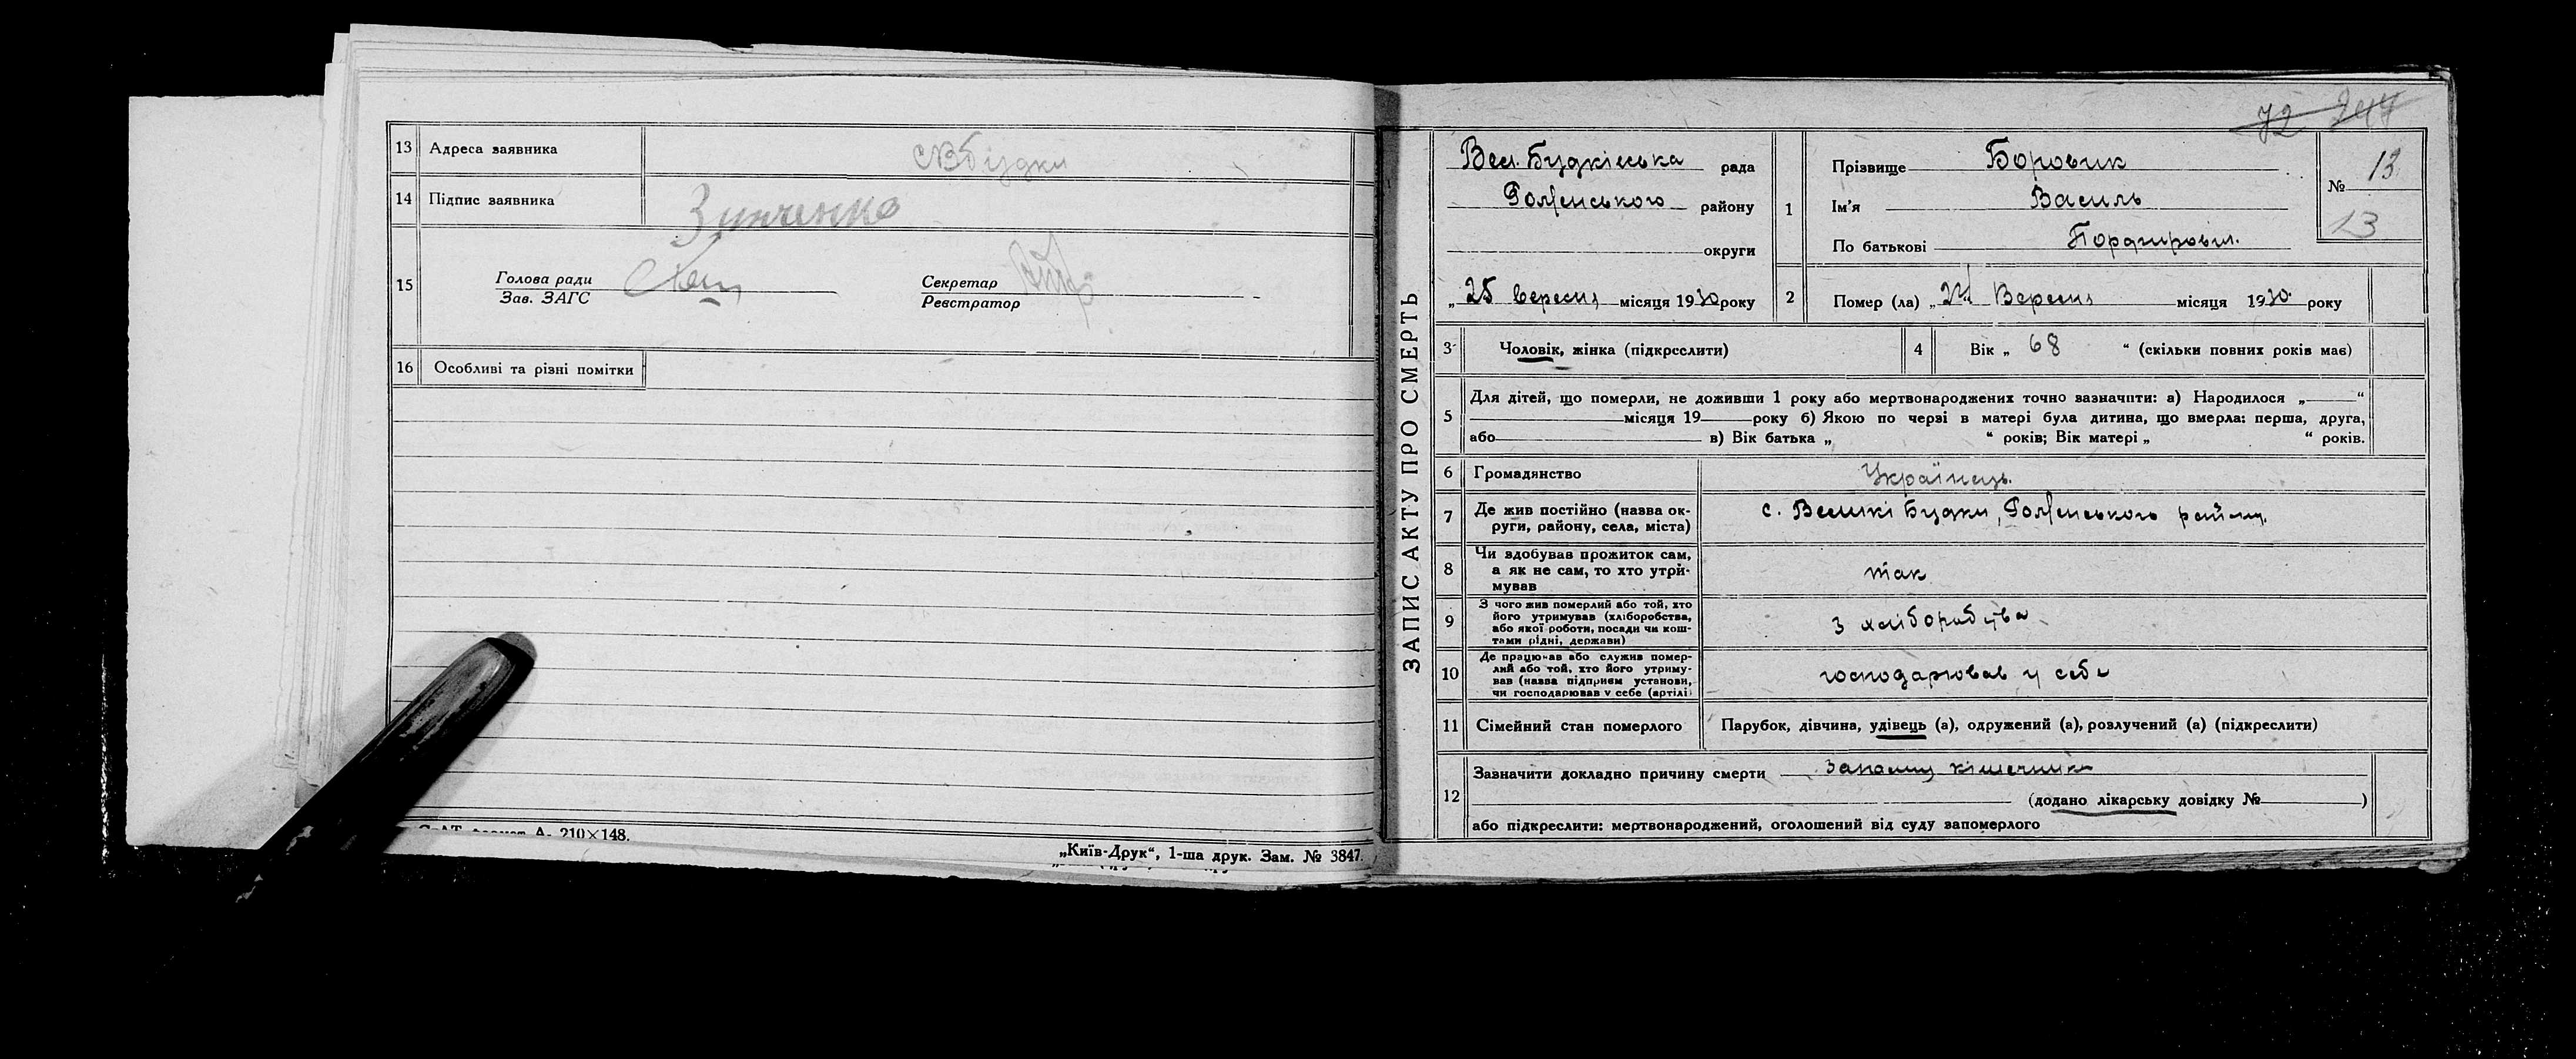 13 Адреса заявника с В будки
14 Підпис заявника Зинченко
15 Голова ради
Зав. ЗАГС
Секретар
Реєстратор
16 Особливі та різні помітки
А. 210×148.
„Київ-Друк“, 1-ша друк. Зам. № 3847.
ЗАПИС АКТУ ПРО СМЕРТЬ
72 247
Вел. Будківська рада
Роменського району
округи
„ 25 вересня місяця 1930 року
1 Прізвище Боровик
Ім'я Василь
По батькові Порфирович.
№ 13
13
2 Помер (ла) „ 24 Вересня місяця 1930 року
3 Чоловік, жінка (підкреслити)
4 Вік „ 68 “ (скільки повних років має)
5 Для дітей, що померли, не доживши 1 року або мертвонароджених точно зазначити: а) Народилося „ “
місяця 19 року б) Якою по черзі в матері була дитина, що вмерла: перша, друга,
або в) Вік батька „ “ років; Вік матері „ “ років.
6 Громадянство Українець.
7 Де жив постійно (назва ок-
руги, району, села, міста)
с. Великі Будки, Роменського району.
8 Чи здобував прожиток сам,
а як не сам, то хто утри-
мував
так
9 З чого жив померлий або той, хто
його утримував (хліборобства,
або якої роботи, посади чи кош-
тами рідні, держави)
з хліборобства
10 Де працював або служив помер-
лий або той, хто його утриму-
вав (назва підприєм установи,
чи господарював у себе (артілі)
господарював у себе
11 Сімейний стан померлого Парубок, дівчина, удівець (а), одружений (а), розлучений (а) (підкреслити)
12 Зазначити докладно причину смерти кишечника
(додано лікарську довідку № )
або підкреслити: мертвонароджений, оголошений від суду запомерлого